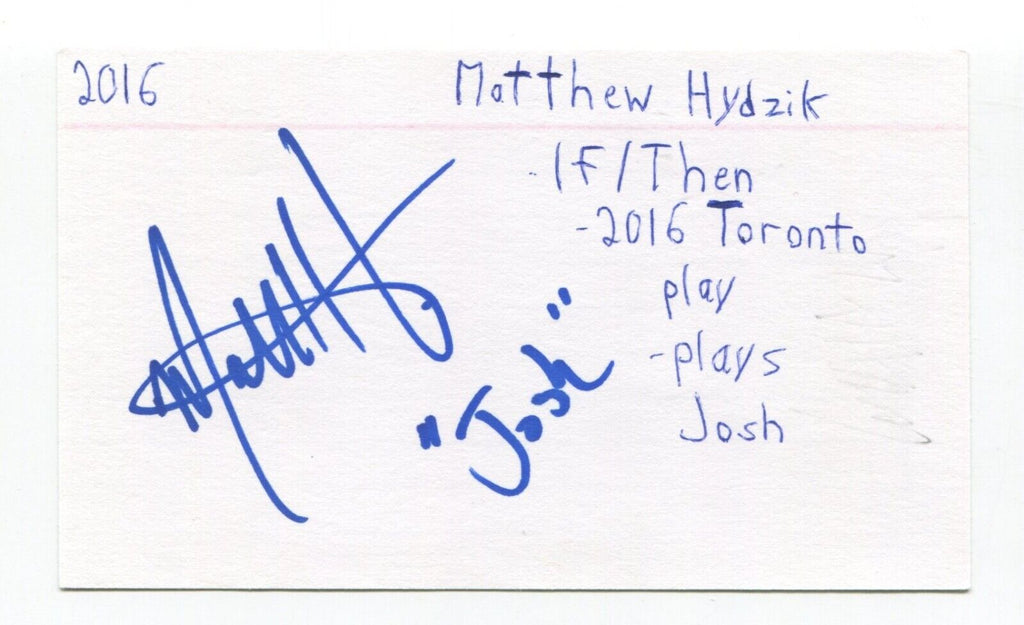 2016
Matthew Hydzik
- If/Then
-2016 Toronto
play
-plays
Josh
Matt H
"Josh"